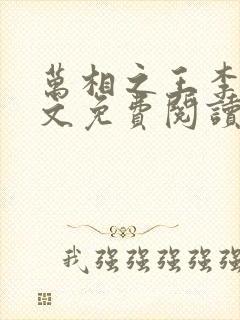 萬相之王李
文免費閱讀
我強強強強強